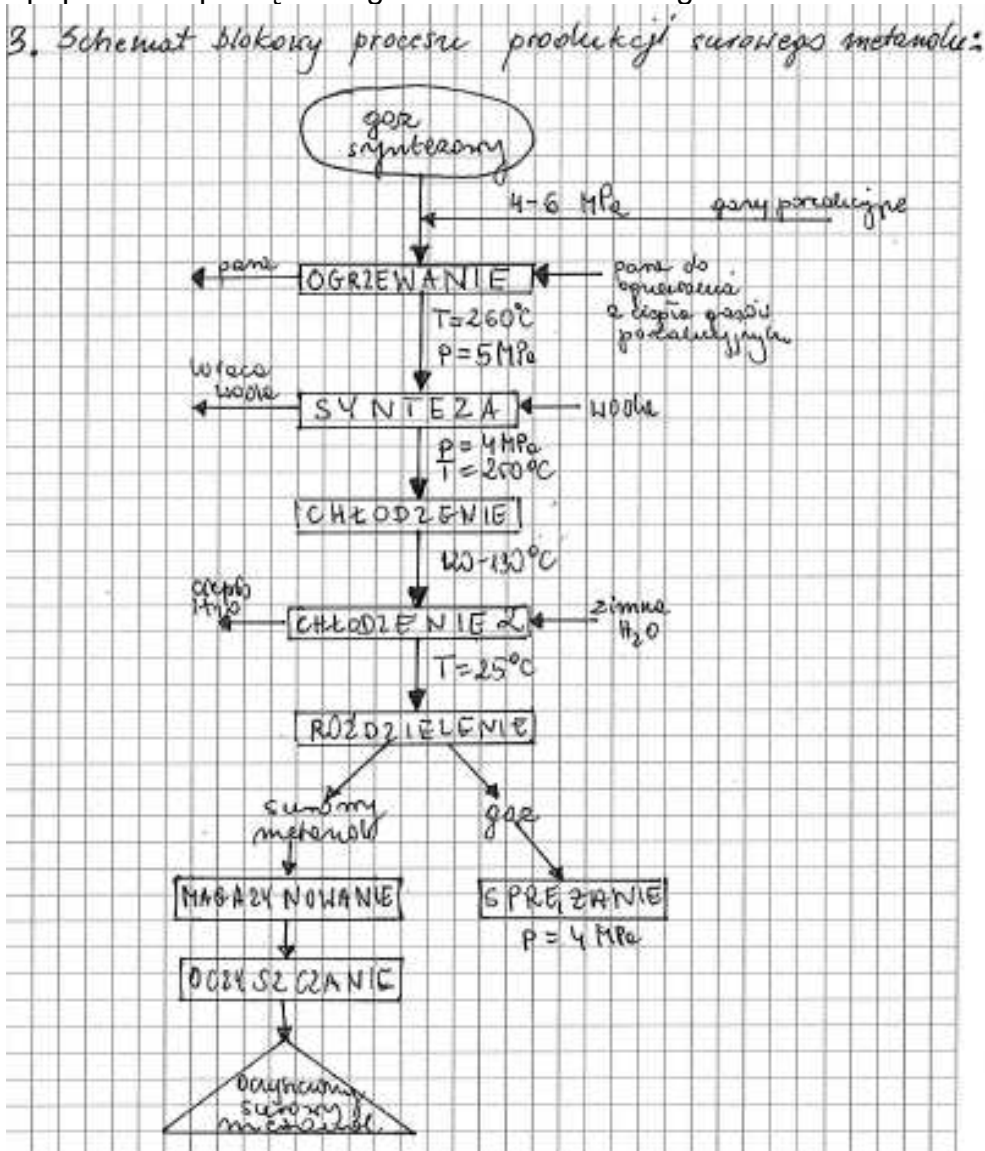 3. Schemat blokowy procesu produkcji surowego metanolu:
gaz
syntezowy
4-6 MPa
gazy poreakcyjne
para
OGRZEWANIE
para do
ogrzewania
z ciepła gazów
poreakcyjnych
T=260°C
p=5MPa
wraca
woda
SYNTEZA
woda
p=4MPa
T=250°C
CHŁODZENIE
120-130°C
ciepło
CHŁODZENIE 2
zimna
H2O
T=25°C
ROZDZIELENIE
surowy
metanol
gaz
MAGAZYNOWANIE
SPRĘŻANIE
p=4 MPa
OCZYSZCZANIE
oczyszczony
surowy
metanol